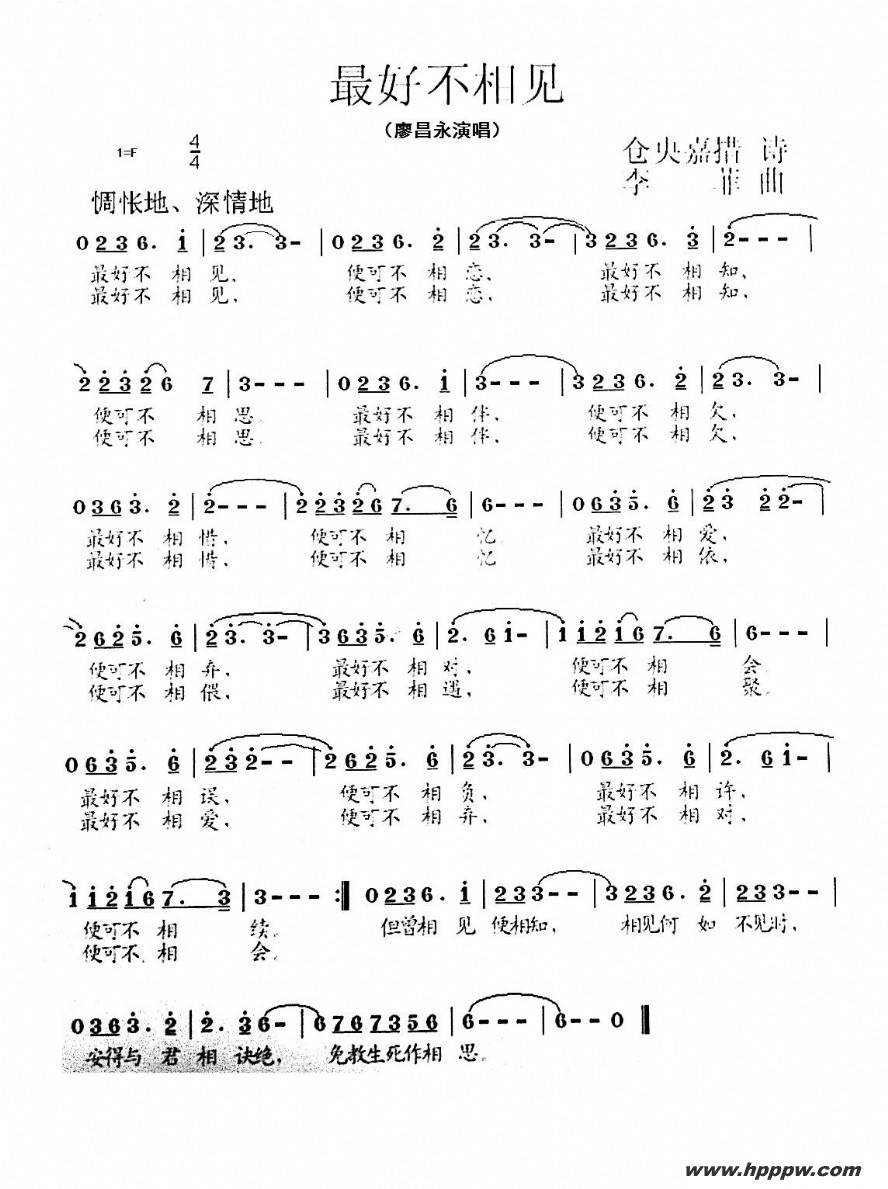 最好不相见
（廖昌永演唱）
1=F 4/4
仓央嘉措 诗
李 菲 曲
惆怅地、深情地
0 2 3 6. i | 2 3. 3- | 0 2 3 6. 2 | 2 3. 3- | 3 2 3 6. 3 | 2--- |
最好不 相 见， 便可不 相 恋， 最好不 相 知，
最好不 相 见， 便可不 相 恋， 最好不 相 知，
2 2 3 2 6 7 | 3--- | 0 2 3 6. i | 3--- | 3 2 3 6. 2 | 2 3. 3- |
便可不 相 思。 最好不 相 伴， 便可不 相 欠，
便可不 相 思。 最好不 相 伴， 便可不 相 欠，
0 3 6 3. 2 | 2--- | 2 2 3 2 6 7. 6 | 6--- | 0 6 3 5. 6 | 2 3 2 2- |
最好不 相 惜， 便可不 相 忆。 最好不 相 爱，
最好不 相 惜， 便可不 相 忆 最好不 相 依，
2 6 2 5. 6 | 2 3. 3- | 3 6 3 5. 6 | 2. 6 i- | i i 2 i 6 7. 6 | 6--- |
便可不 相 弃， 最好不 相 对， 便可不 相 会。
便可不 相 偎， 最好不 相 遇， 便可不 相 聚。
0 6 3 5. 6 | 2 3 2-- | 2 6 2 5. 6 | 2 3. 3- | 0 6 3 5. 6 | 2. 6 i- |
最好不 相 误， 便可不 相 负， 最好不 相 许，
最好不 相 爱， 便可不 相 弃， 最好不 相 对，
i i 2 i 6 7. 3 | 3--- :‖ 0 2 3 6. i | 2 3 3-- | 3 2 3 6. 2 | 2 3 3-- |
便可不 相 续。 但曾相 见 便相知， 相见何 如 不见时，
便可不 相 会。
0 3 6 3. 2 | 2. 3 6- | 6 7 6 7 3 5 6 | 6--- | 6--0 ‖
安得与 君 相 诀绝， 免教生死作相 思。
www.hpppw.com